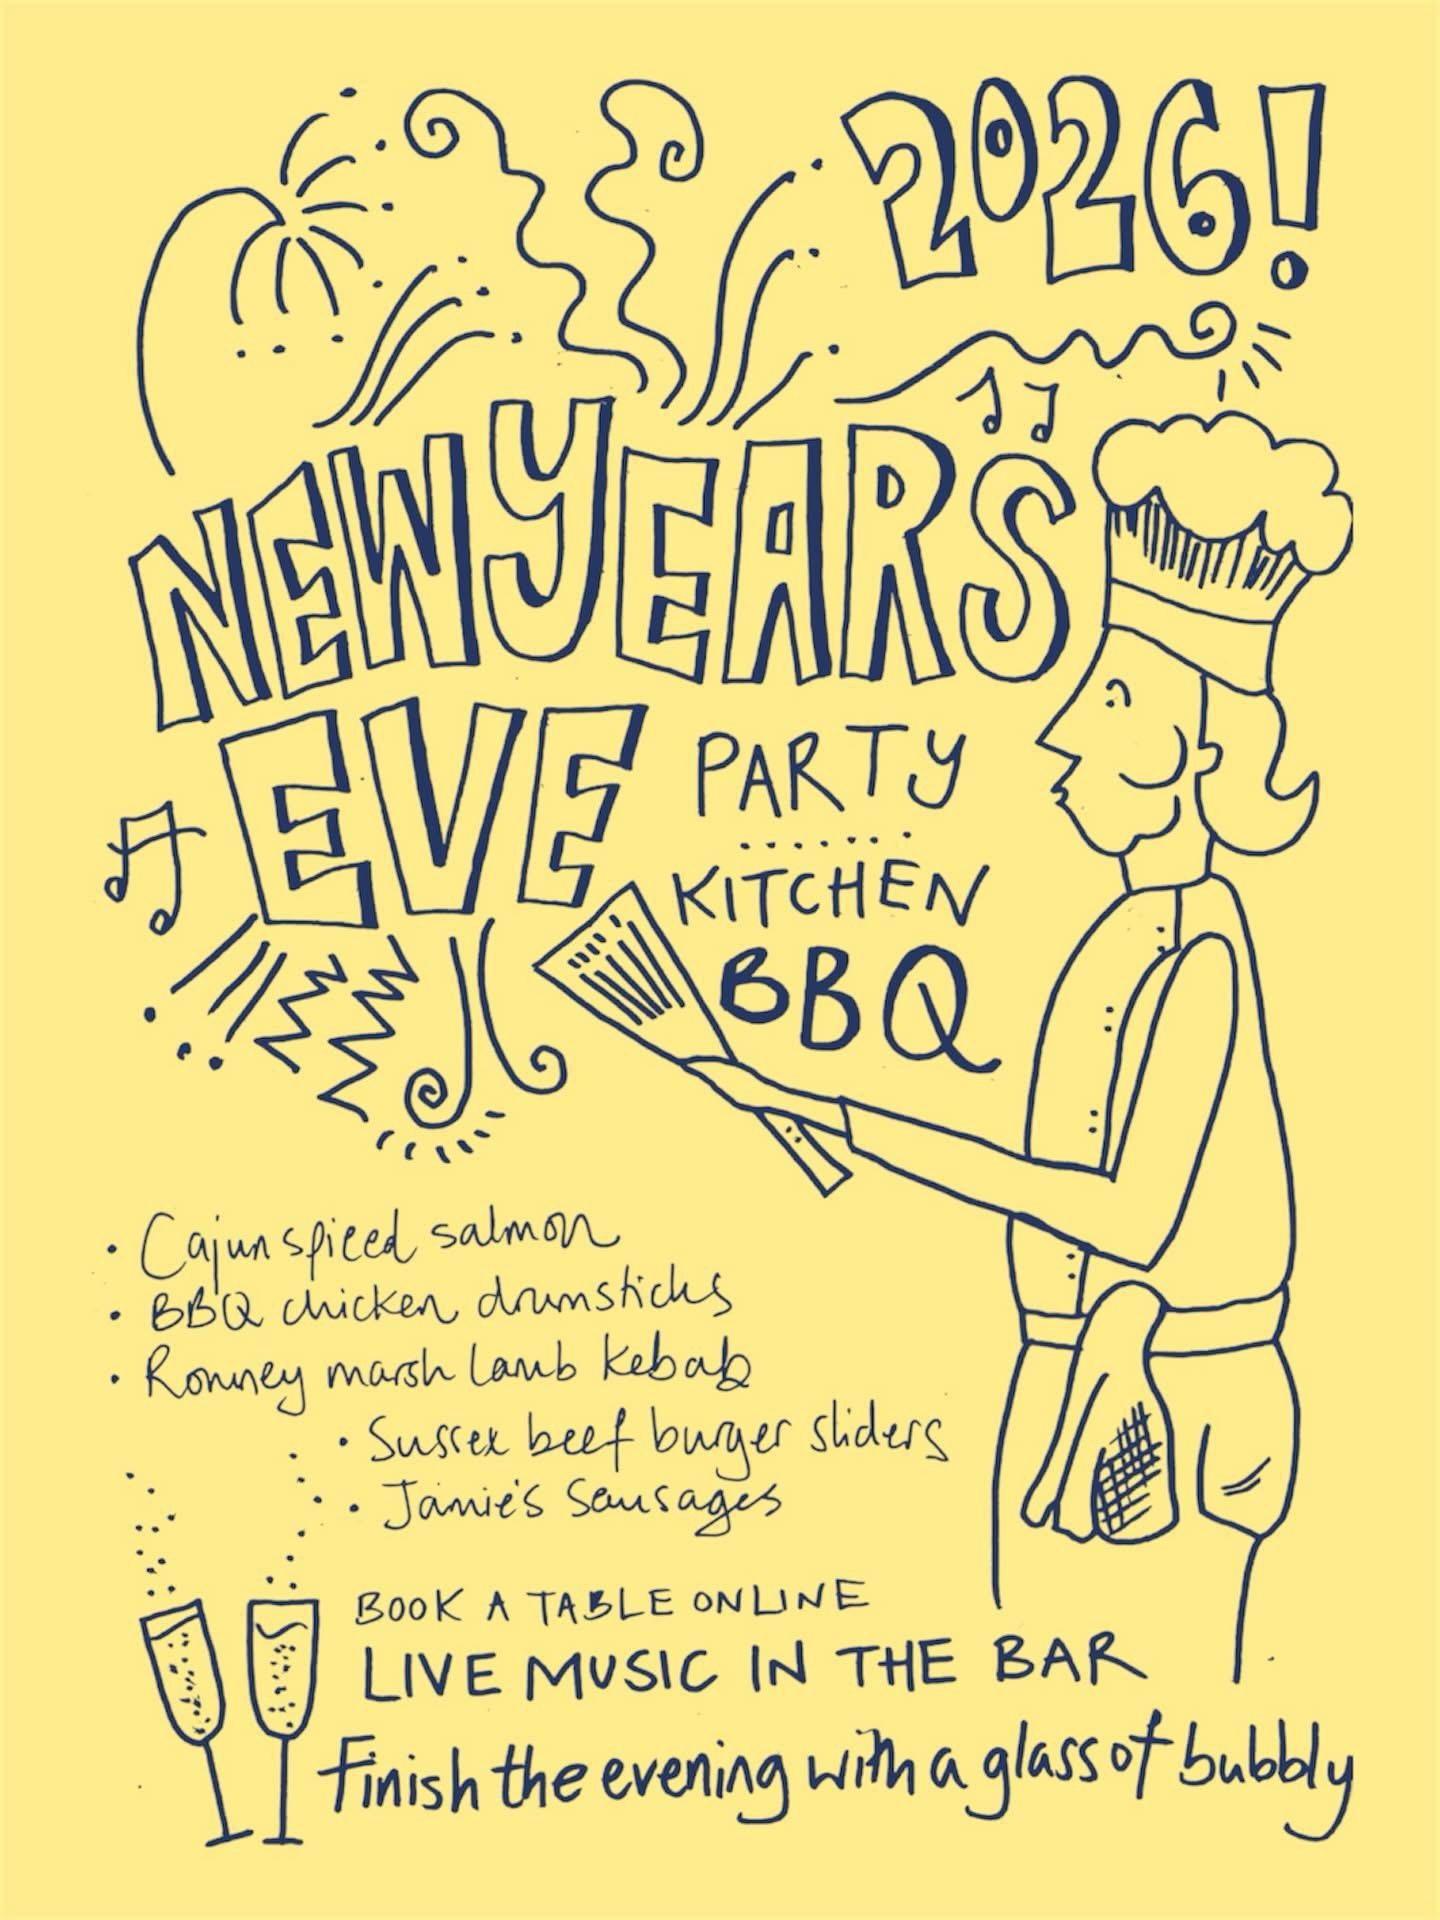 2026!
NEW YEARS
EVE PARTY
KITCHEN
BBQ
• Cajun spiced salmon
• BBQ chicken drumsticks
• Romney marsh lamb kebab
• Sussex beef burger sliders
• Jamie's Sausages
BOOK A TABLE ONLINE
LIVE MUSIC IN THE BAR
Finish the evening with a glass of bubbly